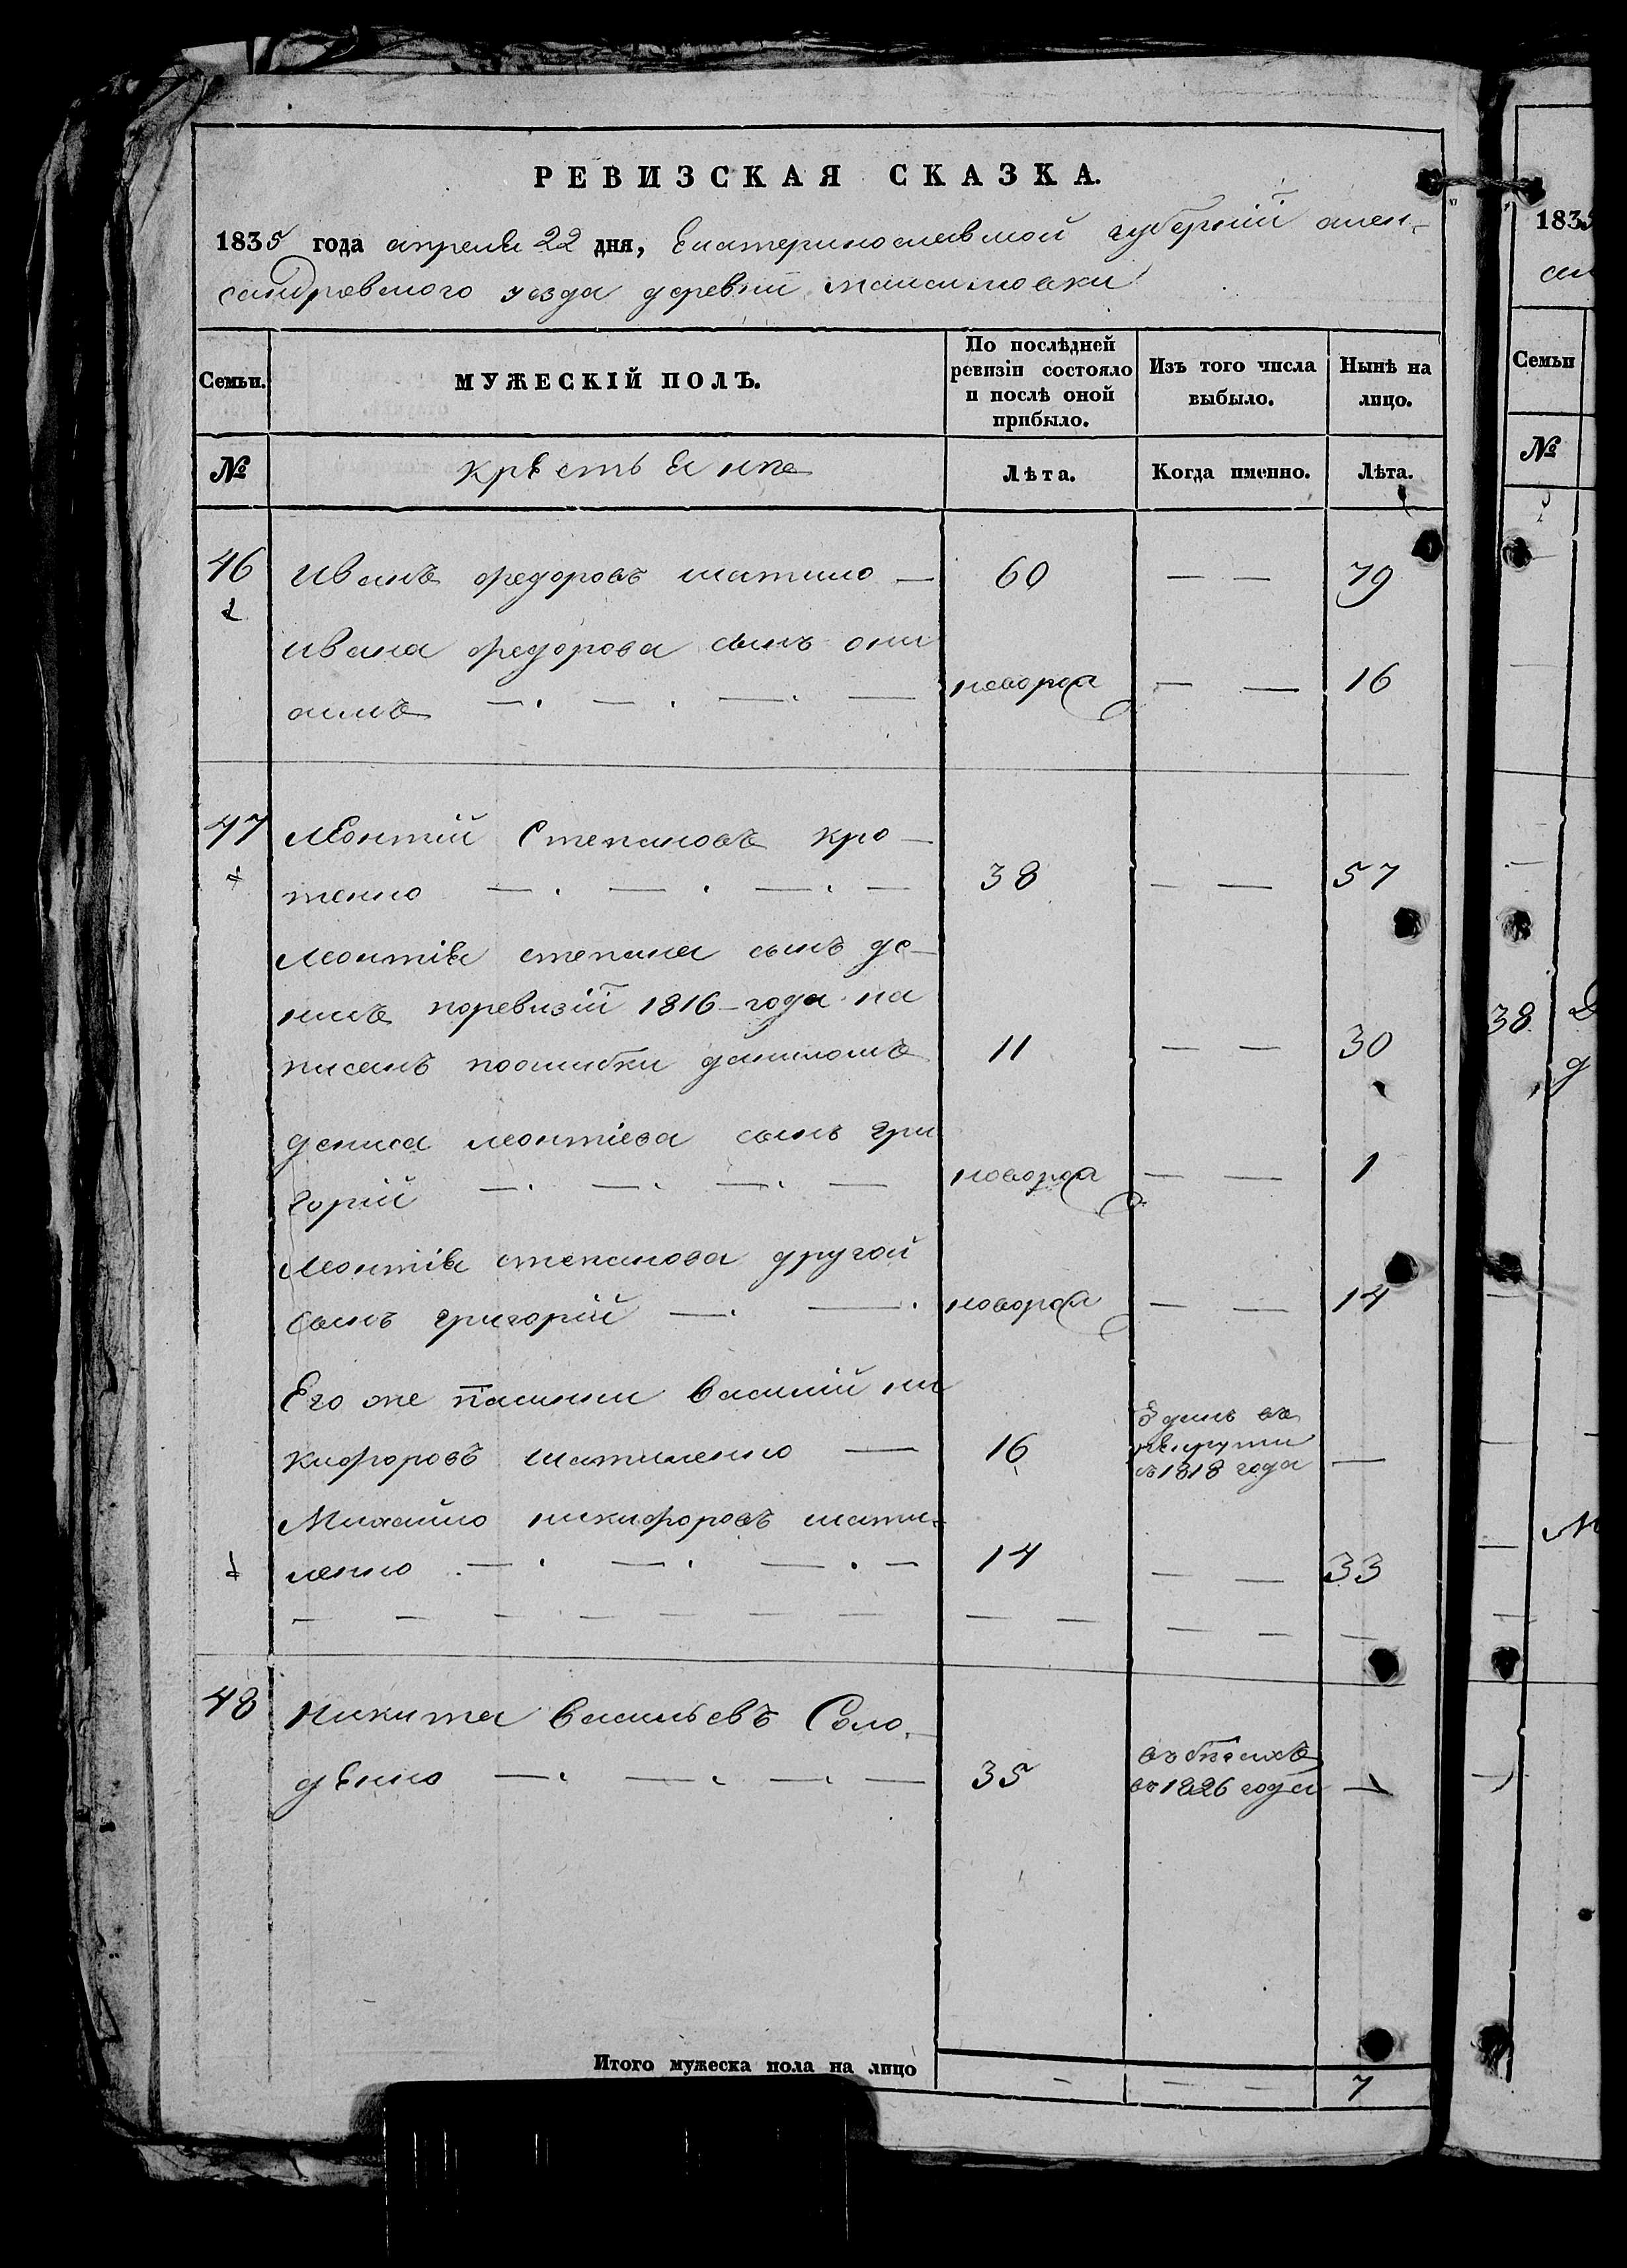 РЕВИЗСКАЯ СКАЗКА.
1835 года апреля 22 дня, Екатеринославской губернiй алек-
сандровского уезда деревни максимовки
Семьи.
МУЖЕСКІЙ ПОЛЪ.
По послѣдней ревизіи состояло и послѣ оной прибыло.
Изъ того числа выбыло.
Нынѣ на лицо.
№
крѣстьяне
Лѣта.
Когда именно.
Лѣта.
46 иванъ федоровъ шатило — 60 — — 79
ивана федорова сынъ они
симъ — . — . — . — новорож — — 16
47 леонтiй Степановъ кро —
тенко — . — . — . — 38 — — 57
леонтiя степана сынъ де —
нисъ поревизiй 1816 – года на
писанъ поошибки даниломъ 11 — — 30
дениса леонтiева сынъ гри
горiй — . — . — . — новорож — — 1
леонтiя степанова другой
сынъ григорiй — . — . новорож — — 14
Его же пасынки василiй ни
кифоровъ шатиленко — 16
в рекруты
въ 1818 года —
Михайло никифоровъ шати-
ленко . — . — . — . — 14 — — 33
— — — — — — — — — — — —
48 никита васильевъ Соло-
дѣнко — . — . — . — 35
въ бегахъ
въ 1826 года —
Итого мужеска пола на лицо — — — 7
1835
Семьи
№
38